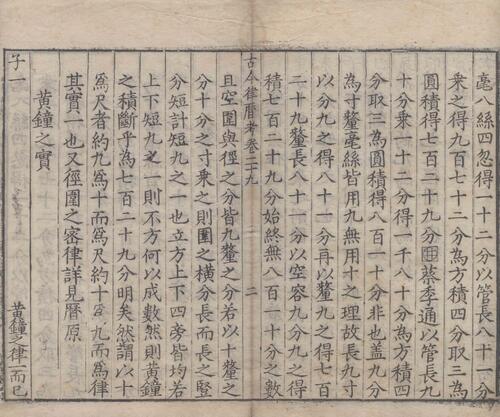 毫八絲四忽得一十二分以管長八十一分
乘之得九百七十二分為方積四分取三為
圓積得七百二十九分𤰃蔡季通以管長九
十分乘一十二分得一千八十分為方積四
分取三為圓積得八百一十分非也盖九分
為寸釐毫絲皆用九無用十之理故長九寸
以分九之得八十一分再以管九之得七百
二十九釐長八十一分以空容九分九之得
積七百二十九分始終無八百一十分之數
古今律曆考卷二十九 二
且空圍與徑之分皆九釐之分若以十釐之
分十分之寸乘之則圍之橫分長而長之竪
分短計短九之一也立方上下四旁皆均若
上下短九之一則不方何以成數然則黃鐘
之積斷乎為七百二十九分明矣然謂以十
為尺者約九為十而為尺約十為九而為律
其實一也又徑圍之密律詳見曆原
黃鐘之實
子一 黃鐘之律一而已